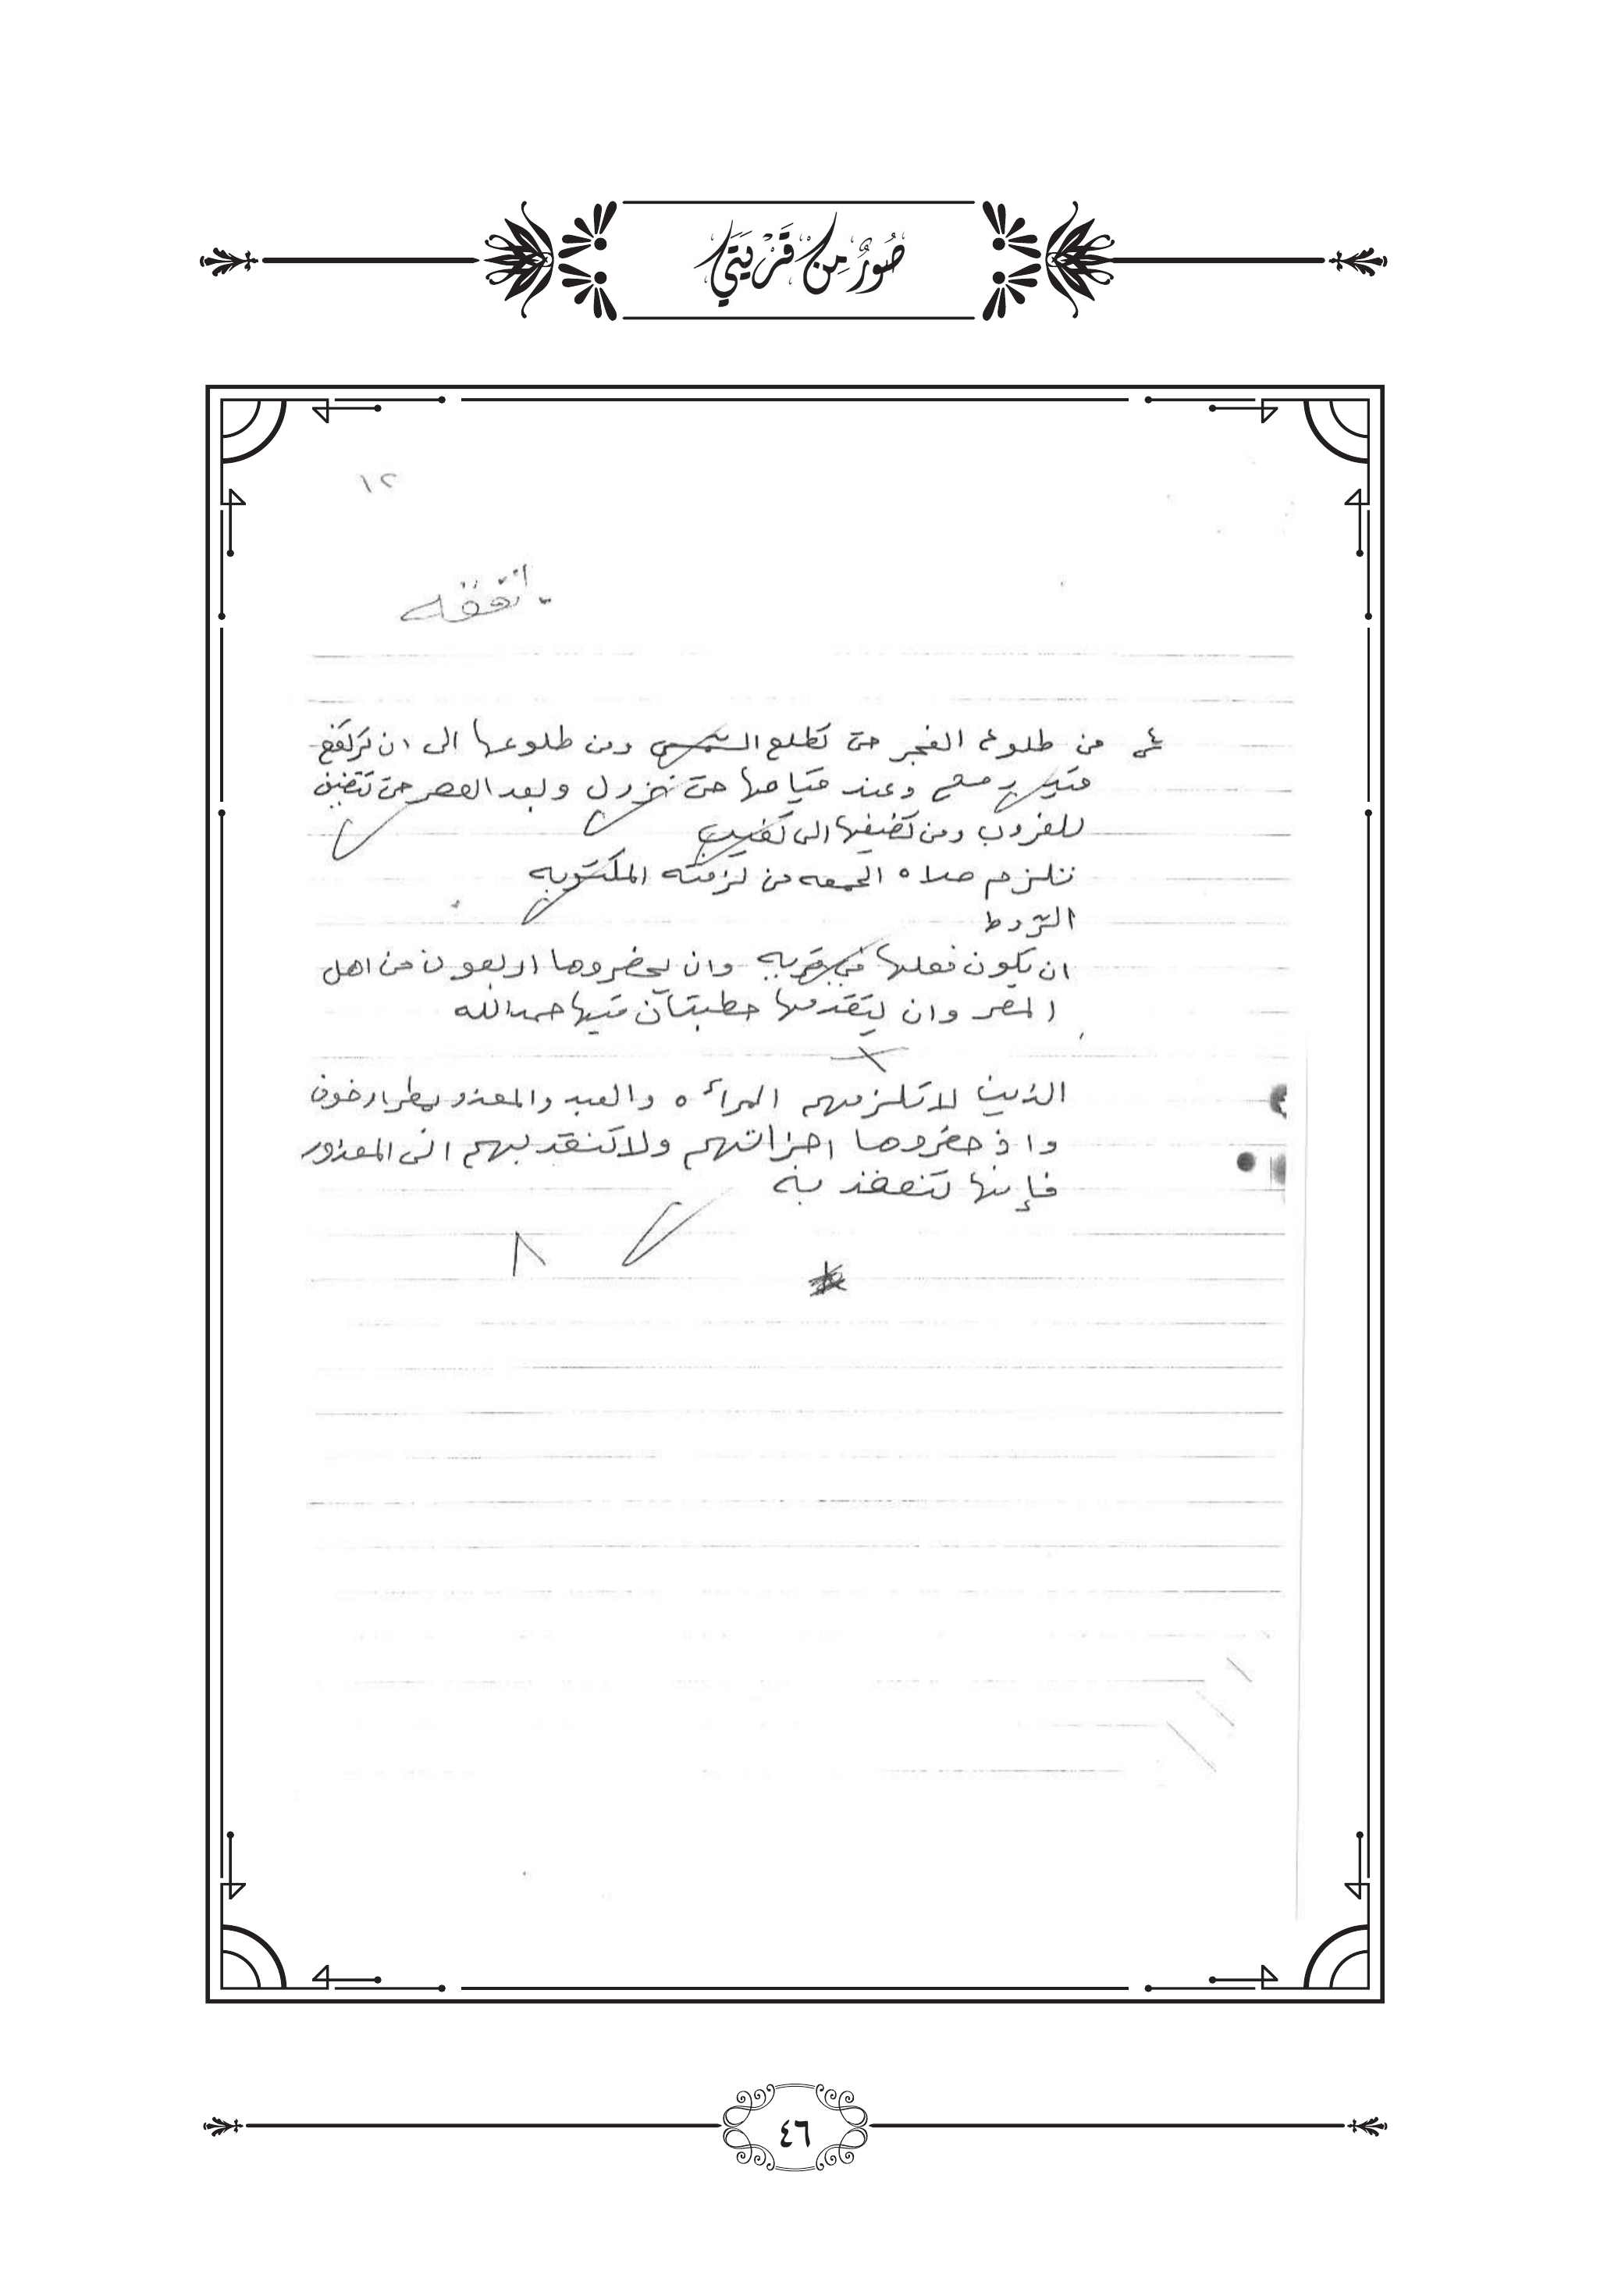 صُوَرٌ مِنْ قَرْيَتِي
١٢
انفقه
من طلوع الفجر حتى تطلع الشمس ومن طلوعها الى ان ترتفع
قيد رمح وعند قيامها حتى تزول وبعد العصر حتى تتضيف
للغروب ومن تضيفها الى تغيب
تلزم صلاه الجمعه من لزمته المكتوبه
الشروط
ان يكون فعلها في قريه وان يحضروها اربعون من اهل
المصر وان يتقدمها خطبتان فيها حمد الله
الذين لا تلزمهم المرأه والعبد والمعذور بمطر او خوف
واذ حضروها اجزاتهم ولا تنعقد بهم الى المعذور
فإنها تنعقد به
٤٦